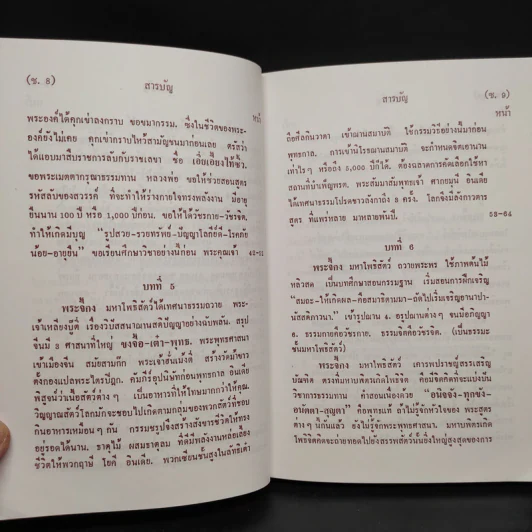 (ซ. 8)
สารบัญ
หน้า
พระองค์ได้คุกเข่าลงกราบ ขอขมากรรม. ซึ่งในชีวิตของพระ-
องค์ยังไม่เคย คุกเข่ากราบไหว้สามัญชนมาก่อนเลย ตรัสว่า
ได้แอบมาสืบราชการลับกับราชเลขา ชื่อ เยื่อเอี้ยงไท้ซิ้ว.
ขอพระเมตตากรุณาธรรมท่าน หลวงพ่อ ขอให้ช่วยสอนสูตร
รหัสลับของสวรรค์ ที่จะทำให้ร่างกายใจทรงพลังงาน มีอายุ
ยืนนาน 100 ปี หรือ 1,000 ปีก่อน. ขอให้ได้วชรกาย-วัชรจิต.
ทำให้เกิดมีบุญ "รูปสวย-รวยทรัพย์-ปัญญาโลกีย์ดี-โรคภัย
น้อย-อายุยืน" ขอเรียนศึกษาวิชาอย่างนี้ก่อน พระคุณเจ้า
บทที่ 5
พระจี้กง มหาโพธิสัตว์ได้เทศนาธรรมถวาย พระ-
เจ้าเหลียงบู๊ตี่ เรื่องวิปัสสนาญาณสติปัญญาอย่างฉบับพลัน. สรุป
จีนมี 3 ศาสนาที่ใหญ่ ขงจื้อ-เต๋า-พุทธ. พระพุทธศาสนา
เข้าเมืองจีน สมัยสามก๊ก พระเจ้าฮั่นเม้งตี่ สร้างวัดม้าขาว
ตั้งกองแปลพระไตรปิฎก. คัมภีร์อุปนิษัทก่อนพุทธกาล อินเดีย
พิสูจน์ว่าเนื้อสัตว์ต่างๆ เป็นอาหารที่ให้โทษมากกว่าให้คุณ.
วิญญาณสัตว์โลกมักจะชอบไปเกิดตามกลุ่มของพวกสัตว์ที่ชอบ
กินอาหารเหมือนๆ กัน กรรมชรรูปจึงสร้างสังขารชีวิตให้ทรง
อยู่รอดได้นาน. ธาตุไม้ ผสมธาตุลม ที่ดีมีพลังงานหล่อเลี้ยง
ชีวิตให้พวกฤาษี โยคี อินเดีย. พวกเซียนชั้นสูงในลัทธิเต๋า
สารบัญ
(ซ. 9)
หน้า
ถือศีลกินวาตา เข้าฌานสมาบัติ ใช้กรรมวิธีอย่างนี้มาก่อน
พุทธกาล. การเข้านิโรธฌานสมาบัติ จะกำหนดจิตเอานาน
เท่าไรๆ หรือถึง 5,000 ปีก็ได้. ต้องฉลาดการคัดเลือกใช้หา
สถานที่บำเพ็ญพรต. พระสัมมาสัมพุทธเจ้า ศากยมุนี อินเดีย
ได้เทศนาธรรมโปรดชาวลังกาถึง 3 ครั้ง. โลกจึงมีลังกาวตาร
สูตร ที่แพร่หลาย มาหลายพันปี.
บทที่ 6
พระจี้กง มหาโพธิสัตว์ ถวายพระพร ใช้ภาพต้นไม้
หลิวสด เป็นบทศึกษาสอนกรรมฐาน เริ่มสอนการฝึกเจริญ
"สมถะ-ให้เกิดผล-ค่อยสมาธิตามมา-ถัดไปเริ่มเจริญอานาปา-
นัสสติภาวนา. เข้ารูปฌาน 4. อรูปฌานต่างๆ จนมีอภิญญา
6. ธรรมกายคือวัชรกาย. ธรรมจิตคือวัชรจิต. (เป็นธรรมะ
ชั้นมหาโพธิสัตว์)
พระจี้กง มหาโพธิสัตว์ เคารพปราชญ์สรรเสริญ
บัณฑิต ตรงที่มหาบพิตรเกิดโพธิจิต คือมีจิตคิดที่จะแบ่งปัน
วิชาการธรรมทาน คำสอนเน้นไว้ด้วย "อนิจจัง-ทุกขัง-
อนัตตา-สุญตา" คือพุทธแท้ ถ้าไม่รู้จักหัวใจของ พระสูตร
ต่างๆ นี้กันแล้ว ยังไม่รู้จักพระพุทธศาสนา. มหาบพิตรเกิด
โพธิจิตคิดจะถ่ายทอดไปยังสรรพสัตว์นั้นยิ่งใหญ่สูงสุดของการ